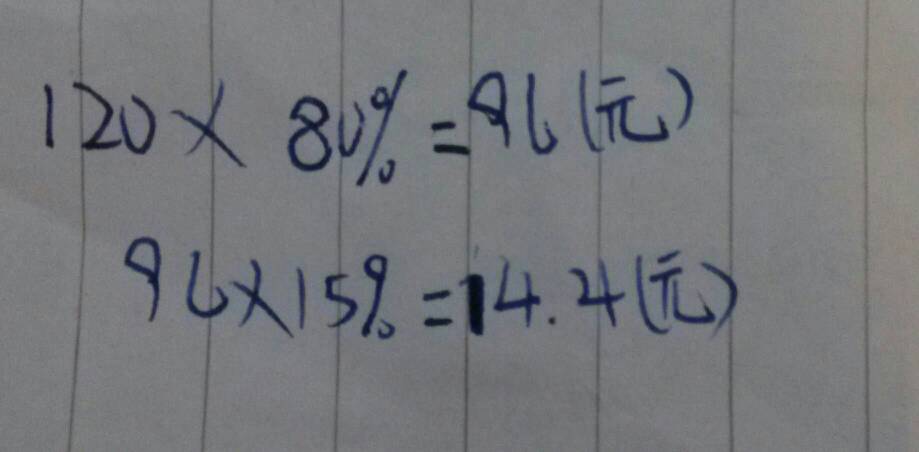 120×80%=96(元)
96×15%=14.4(元)